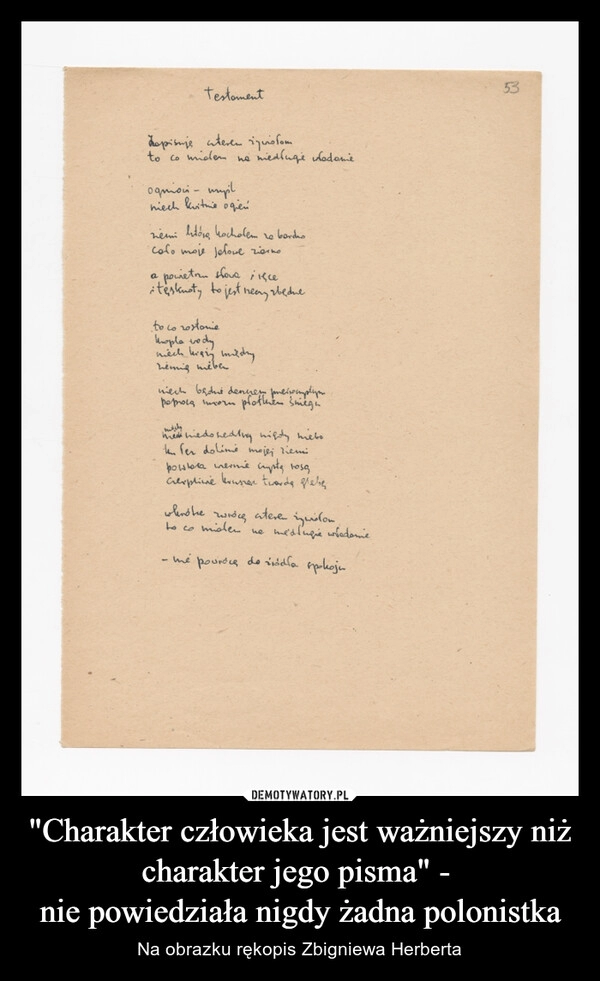 Testament
53
Zapisuję czterem żywiołom
to co miałem na niedługie władanie
ogniowi - myśl
niech kwitnie ogień
ziemi którą kochałem za bardzo
ciało moje jałowe ziarno
a powietrzu słowa i ręce
i tęsknoty to jest rzeczy zbędne
to co zostanie
kropla wody
niech krąży między
ziemią niebem
niech będzie deszczem przezroczystym
paprocią mrozu płatkiem śniegu
niech niedoszedłszy nigdy nieba
ku łez dolinie mojej ziemi
powraca wiernie czystą rosą
cierpliwie krusząc twardą glebę
wkrótce zwrócę czterem żywiołom
to co miałem na niedługie władanie
- nie powrócę do źródła spokoju
DEMOTYWATORY.PL
"Charakter człowieka jest ważniejszy niż
charakter jego pisma" -
nie powiedziała nigdy żadna polonistka
Na obrazku rękopis Zbigniewa Herberta